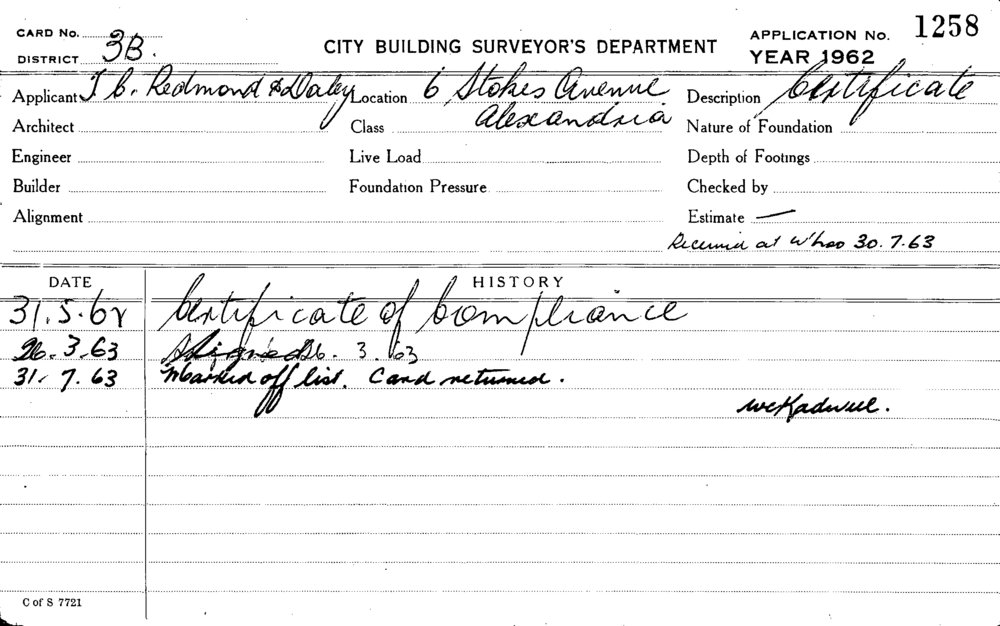 CARD No.
DISTRICT 3B.
CITY BUILDING SURVEYOR'S DEPARTMENT
APPLICATION No. 1258
YEAR 1962
Applicant T C. Redmond & Daley Location 6 Stokes Avenue Description Certificate
Architect Class Alexandria Nature of Foundation
Engineer Live Load Depth of Footings
Builder Foundation Pressure Checked by
Alignment Estimate —
Received at W'hoo 30.7.63
DATE HISTORY
31.5.62 Certificate of Compliance
26.3.63 Signed 26.3.63
31.7.63 Marked off list. Card returned.
C of S 7721